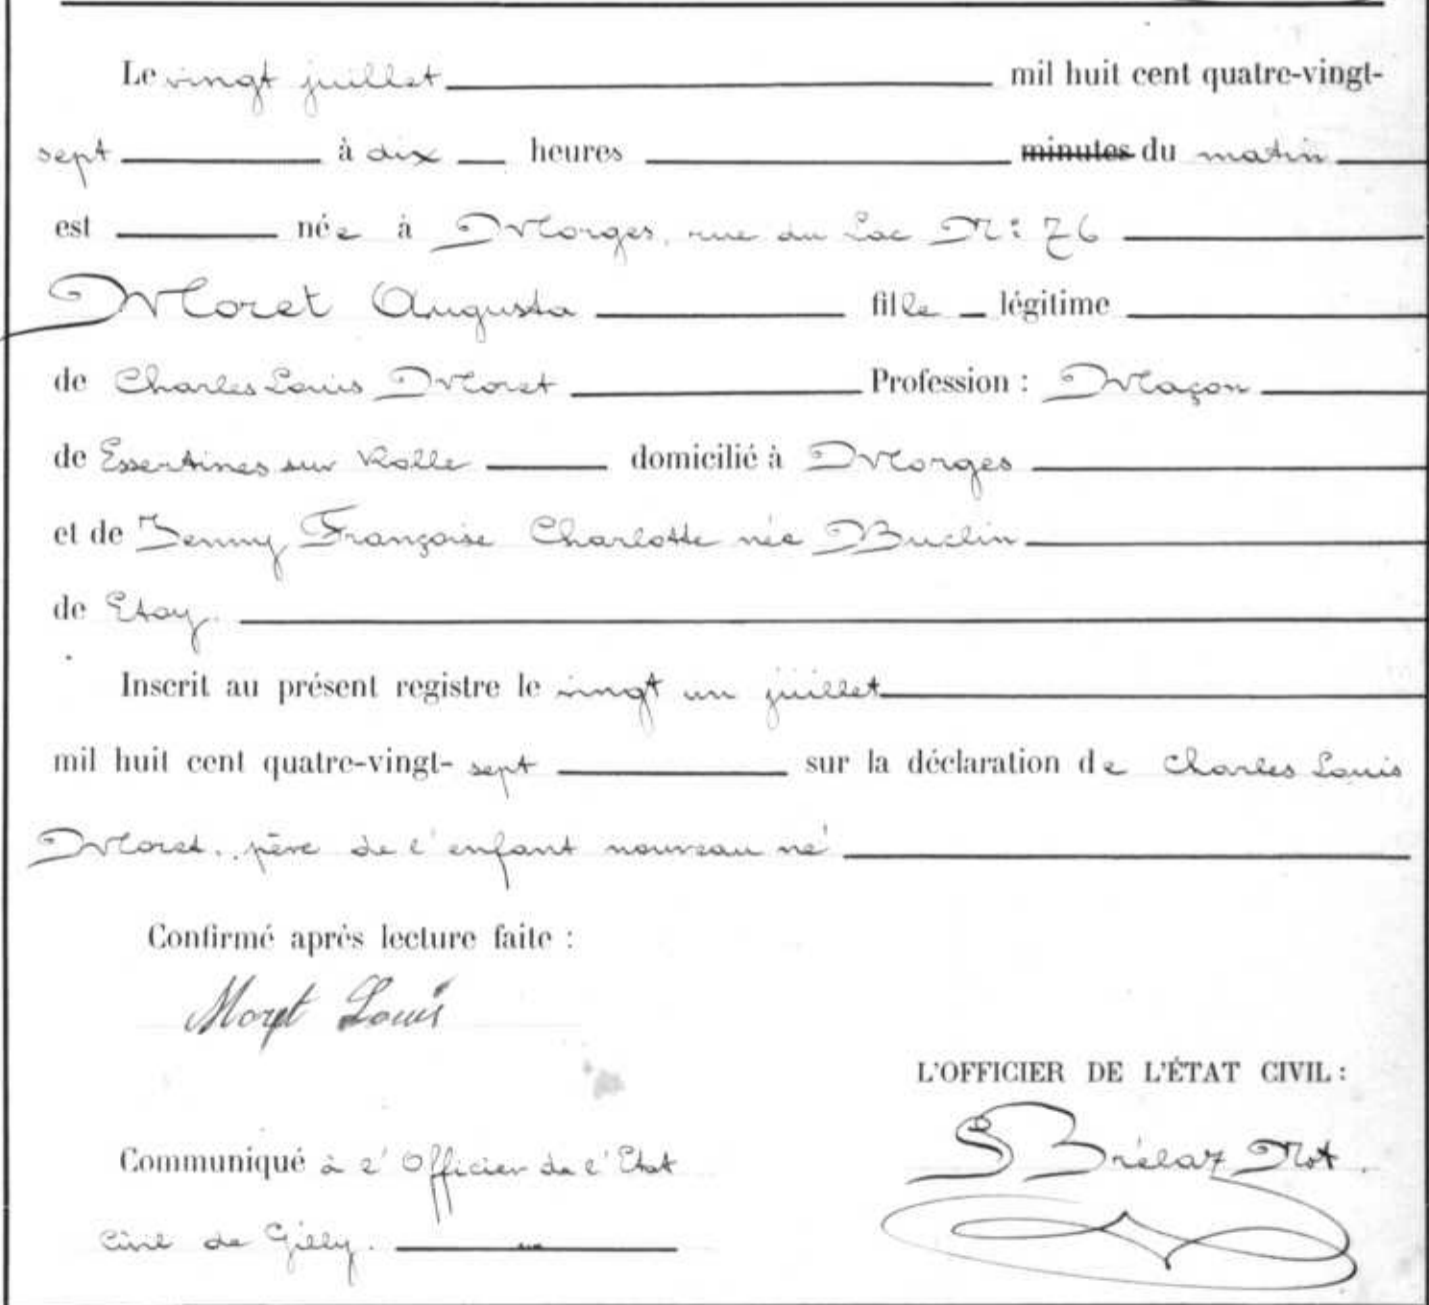 Le vingt juillet mil huit cent quatre-vingt-
sept à dix heures minutes du matin
est née à Morges, rue du Lac No: 76
Moret Augusta fille légitime
de Charles Louis Moret Profession : Maçon
de Essertines sur Rolle domicilié à Morges
et de Jenny Françoise Charlotte née Buclin
de Etoy.
Inscrit au présent registre le vingt un juillet
mil huit cent quatre-vingt- sept sur la déclaration de Charles Louis
Moret, père de l'enfant nouveau né
Confirmé après lecture faite :
Moret Louis
L'OFFICIER DE L'ÉTAT CIVIL :
S Brélaz Not.
Communiqué à l'Officier de l'Etat
Civil de Gilly.